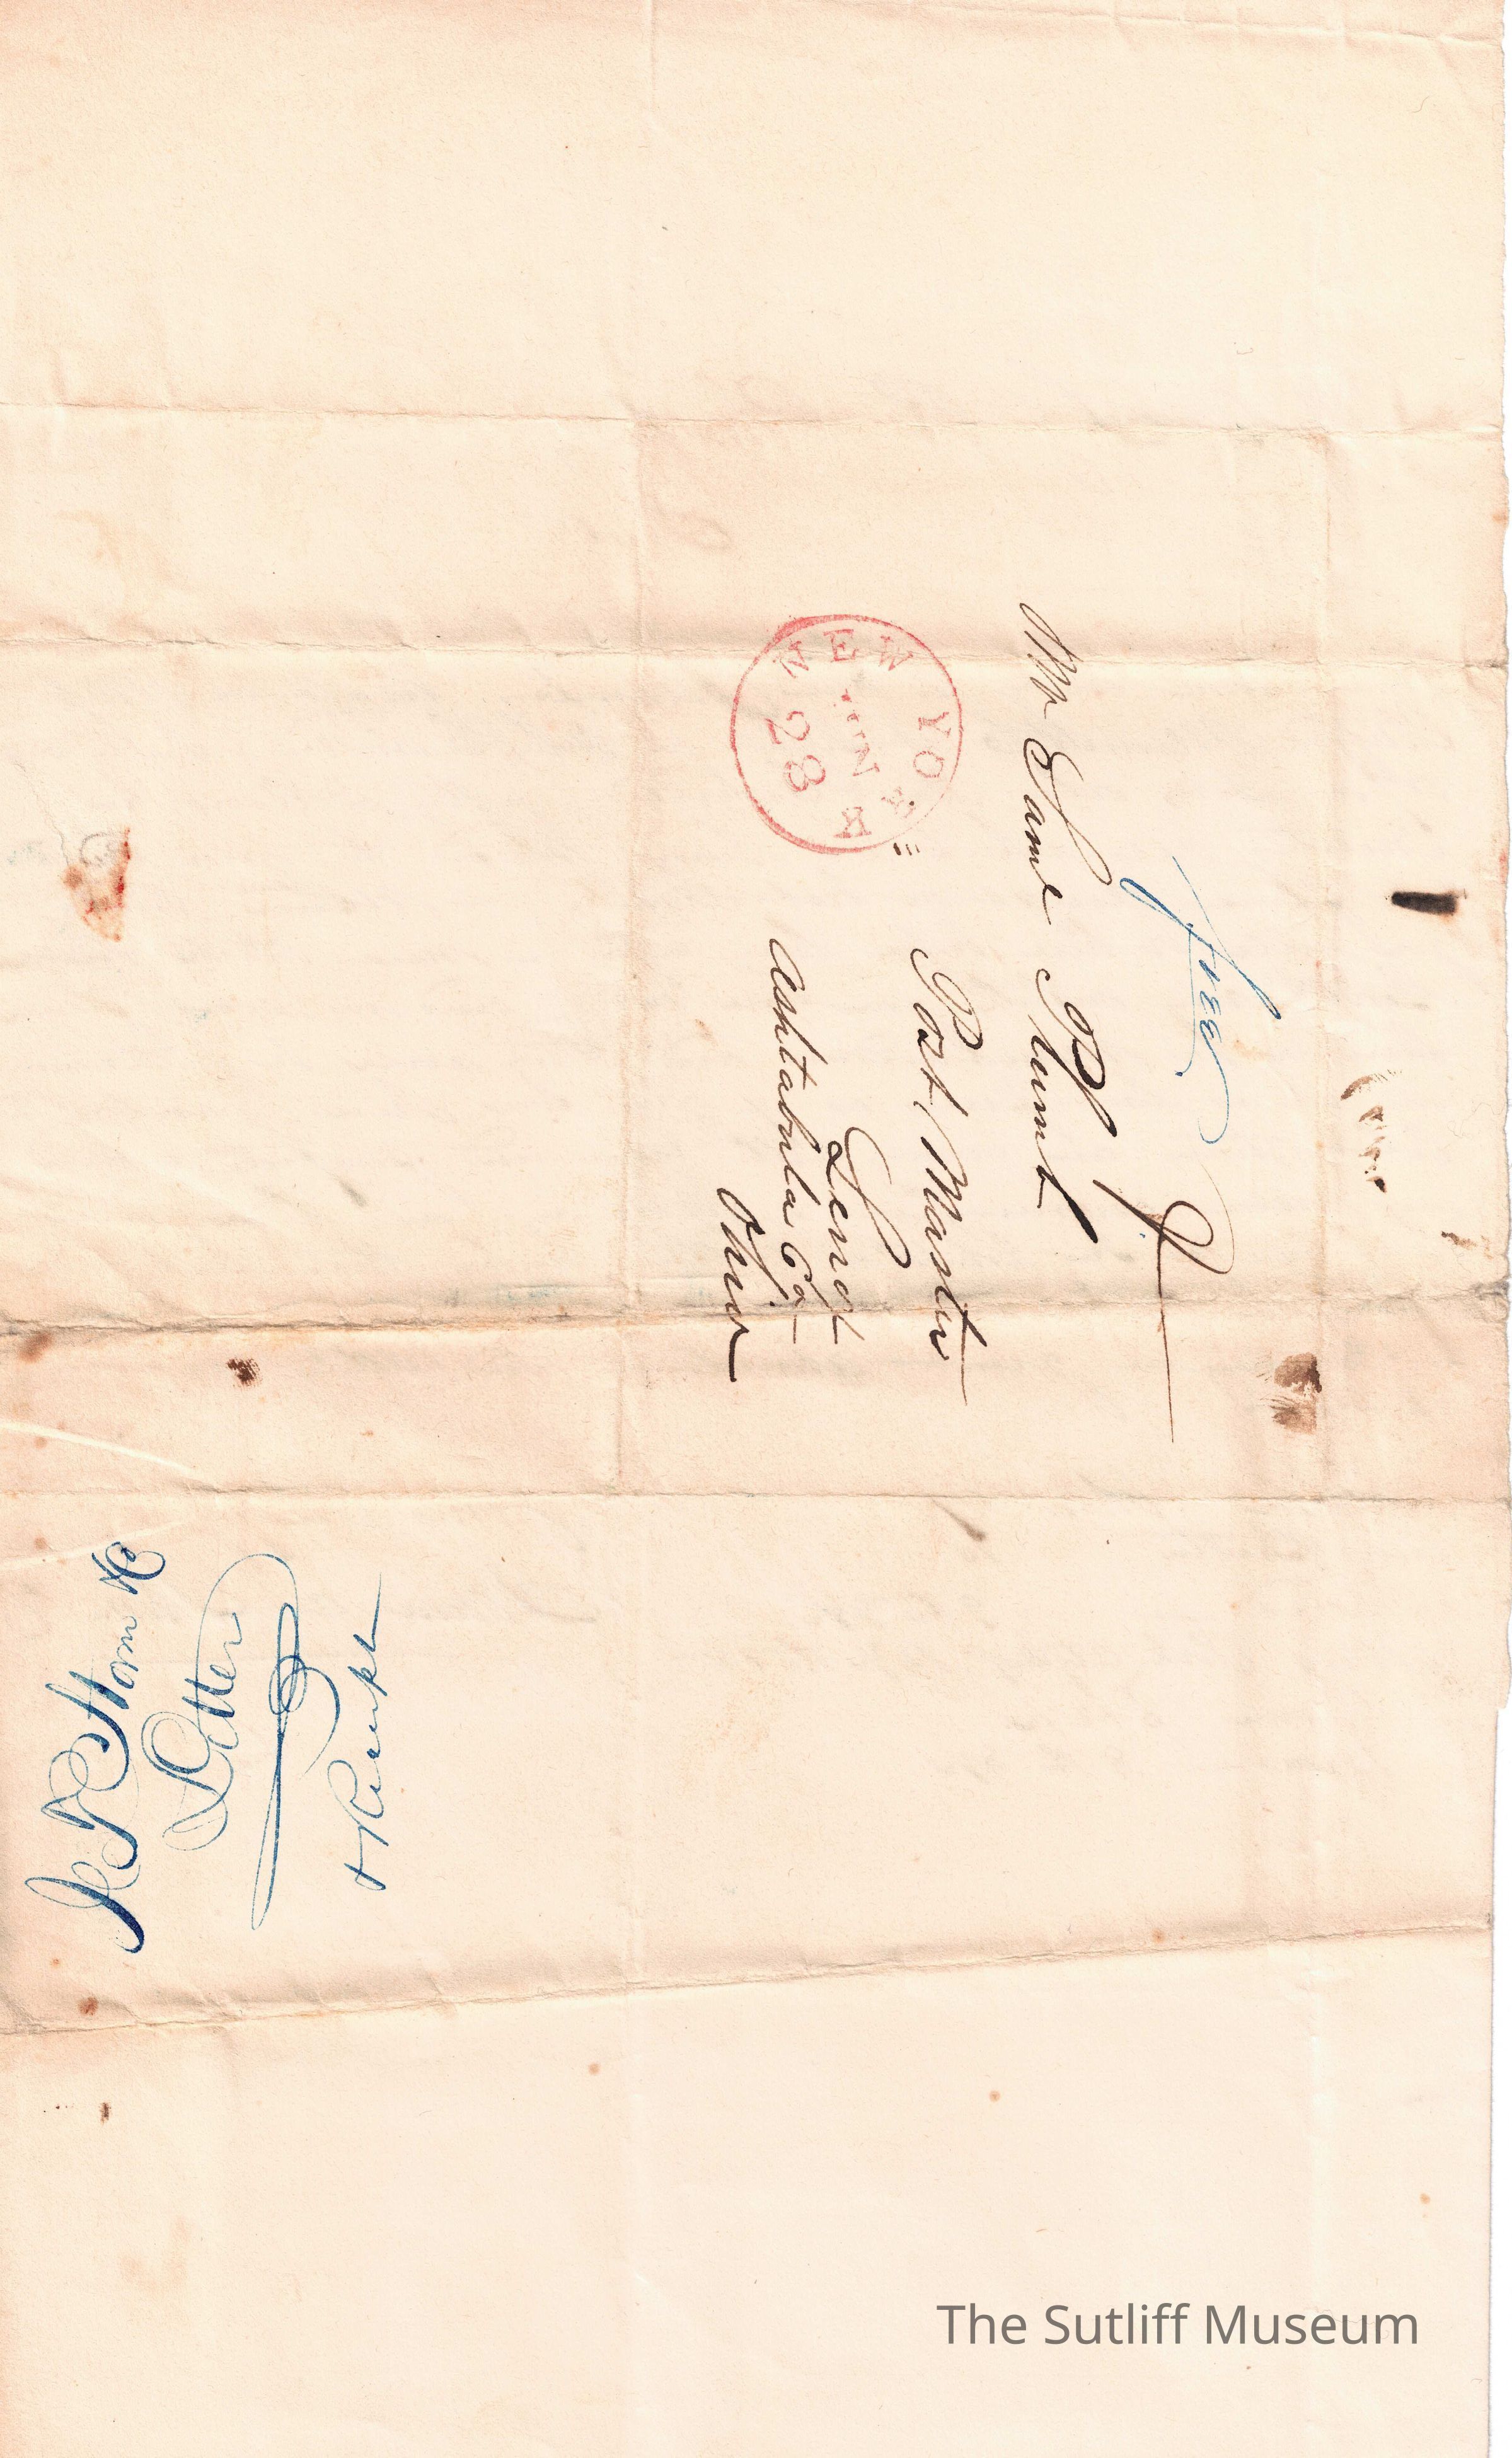 free
Mr Saml Plumb
Post Master
Lenox
Ashtabula Co.
Ohio
NEW YORK
JUN
28
Storm &
Letter
The Sutliff Museum